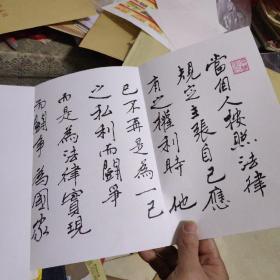 當個人按照法律
規定主張自己應
有之權利時他
已不再是為一己
之私利而鬪爭
而是為法律實現
而鬪爭為國家